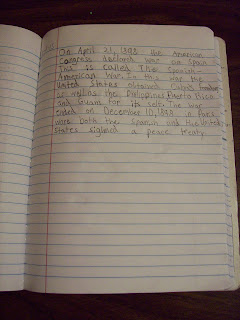 On April 21, 1898 the American
Congress declared War on Spain
This is called The Spanish-
American War. In this war the
United States obtained Cuba's freedom
as well as the Philippines, Puerto Rico
and Guam for its self. The war
ended on December 10, 1898 in Paris
were both the Spanish and the United
States signed a peace treaty.